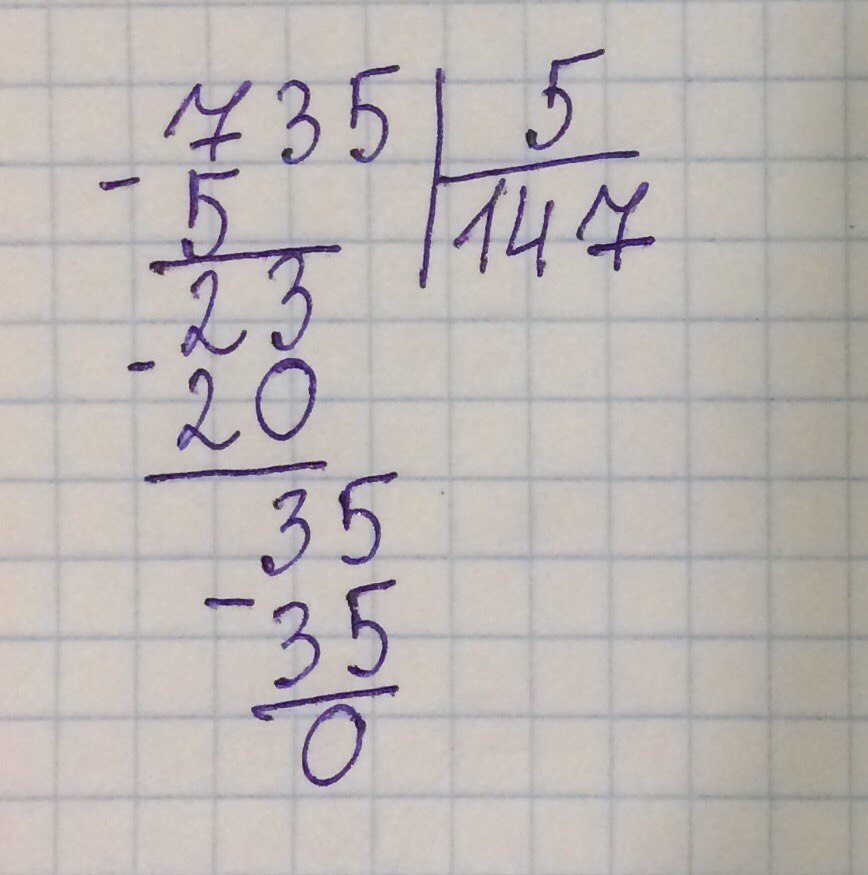 735 | 5
- 5 147
23
- 20
35
- 35
0